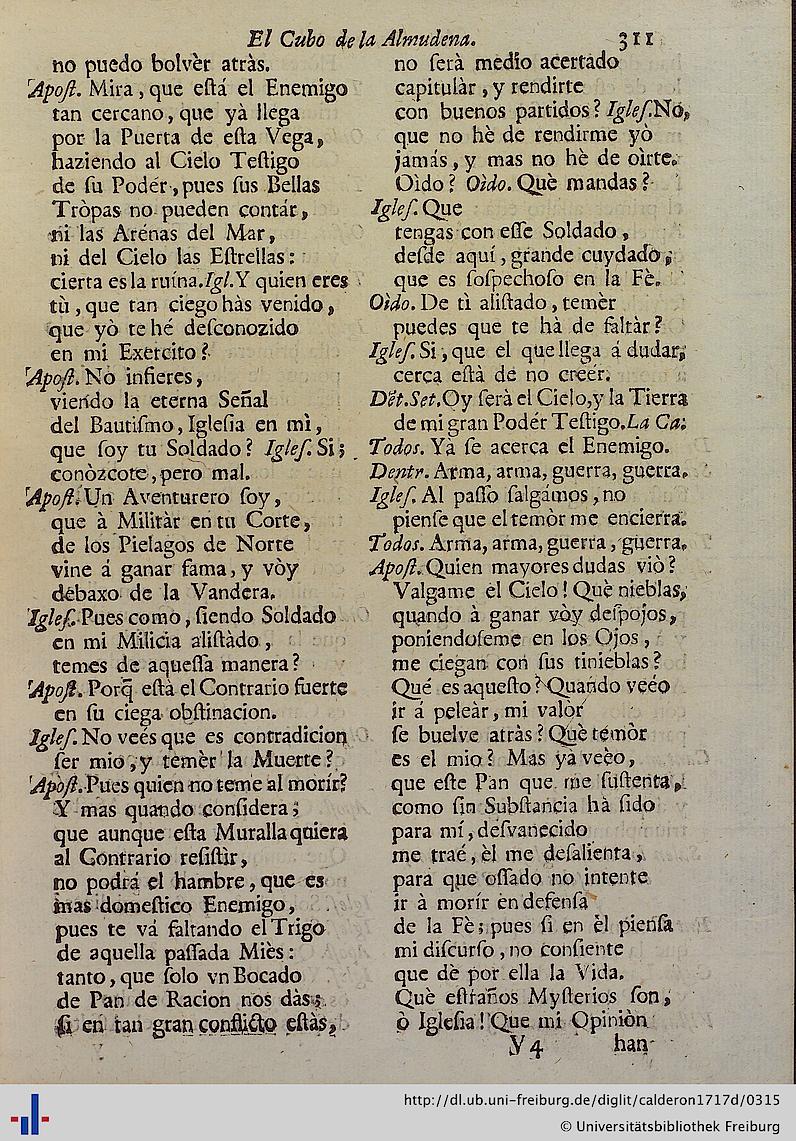 El Cubo de la Almudena. 311
no puedo bolvèr atràs.
Apoſt. Mira, que eſtá el Enemigo
tan cercano, que yà llega
por la Puerta de eſta Vega,
haziendo al Cielo Teſtigo
de ſu Podér, pues ſus Bellas
Tròpas no pueden contár,
ni las Arénas del Mar,
ni del Cielo las Eſtrellas:
cierta es la ruína. Igl. Y quien eres
tù, que tan ciego hàs venido,
que yò te hé deſconozido
en mi Exercito?
Apoſt. No infieres,
viendo la eterna Señal
del Bautiſmo, Igleſia en mì,
que ſoy tu Soldado? Igleſ. Si;
conòzcote, pero mal.
Apoſt. Un Aventurero ſoy,
que à Militàr en tu Corte,
de los Pielagos de Norte
vine á ganar fama, y vòy
debaxo de la Vandera.
Igleſ. Pues como, ſiendo Soldado
en mi Milicia aliſtàdo,
temes de aqueſſa manera?
Apoſt. Porq̃ eſtà el Contrario fuerte
en ſu ciega obſtinacion.
Igleſ. No veés que es contradicion
ſer mio, y temèr la Muerte?
Apòſt. Pues quien no teme al morír?
Y mas quando conſidera;
que aunque eſta Muralla quiera
al Contrario reſiſtìr,
no podrá el hambre, que es
mas domeſtico Enemigo,
pues te vá faltando el Trigo
de aquella paſſada Miès:
tanto, que ſolo vn Bocado
de Pan de Racion nos dàs;
ſi en tan gran conflicto eſtàs,
no ſerà medio acertado
capitulàr, y rendirte
con buenos partidos? Igleſ. No,
que no hè de rendirme yò
jamás, y mas no hè de oìrte.
Oìdo? Oìdo. Què mandas?
Igleſ. Que
tengas con eſſe Soldado,
deſde aquí, grande cuydado,
que es ſoſpechoſo en la Fè.
Oìdo. De tì aliſtado, temèr
puedes que te hà de faltàr?
Igleſ. Si, que el que llega á dudar,
cerca eſtà de no creér.
Dẽt. Set. Oy ſerà el Cielo, y la Tierra
de mi gran Podér Teſtigo. La Ca:
Todos. Yà ſe acerca el Enemigo.
Dentr. Arma, arma, guerra, guerra.
Igleſ. Al paſſo ſalgámos, no
pienſe que el temòr me encierra.
Todos. Arma, arma, guerra, guerra.
Apoſt. Quien mayores dudas viò?
Valgame el Cielo! Què nieblas,
quando à ganar vòy deſpojos,
poniendoſeme en los Ojos,
me ciegan con ſus tinieblas?
Qué es aqueſto? Quando veéo
ir á peleàr, mi valòr
ſe buelve atràs? Què temòr
es el mio? Mas yà veèo,
que eſte Pan que me ſuſtenta,
como ſin Subſtancia hà ſido
para mí, deſvanecido
me traé, èl me deſalienta,
para que oſſado no intente
ir à morír en defenſa
de la Fè; pues ſi en èl pienſa
mi diſcurſo, no conſiente
que dè por ella la Vida.
Què eſtraños Myſterios ſon,
ò Igleſia! Que mi Opiniòn
Y 4 han
http://dl.ub.uni-freiburg.de/diglit/calderon1717d/0315
© Universitätsbibliothek Freiburg